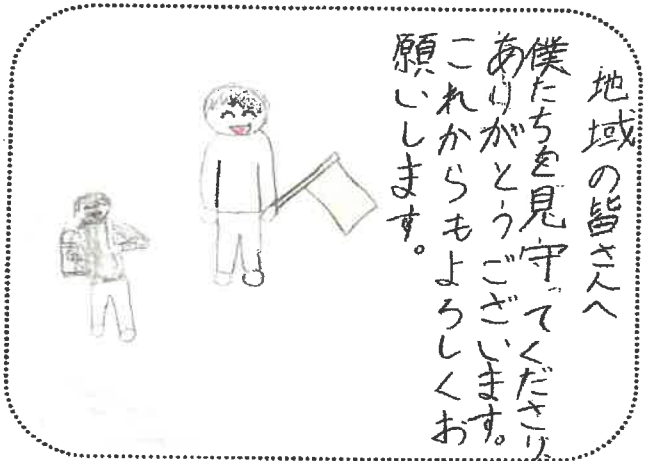 地域の皆さんへ
僕たちを見守ってくださり、
ありがとうございます。
これからもよろしくお
願いします。